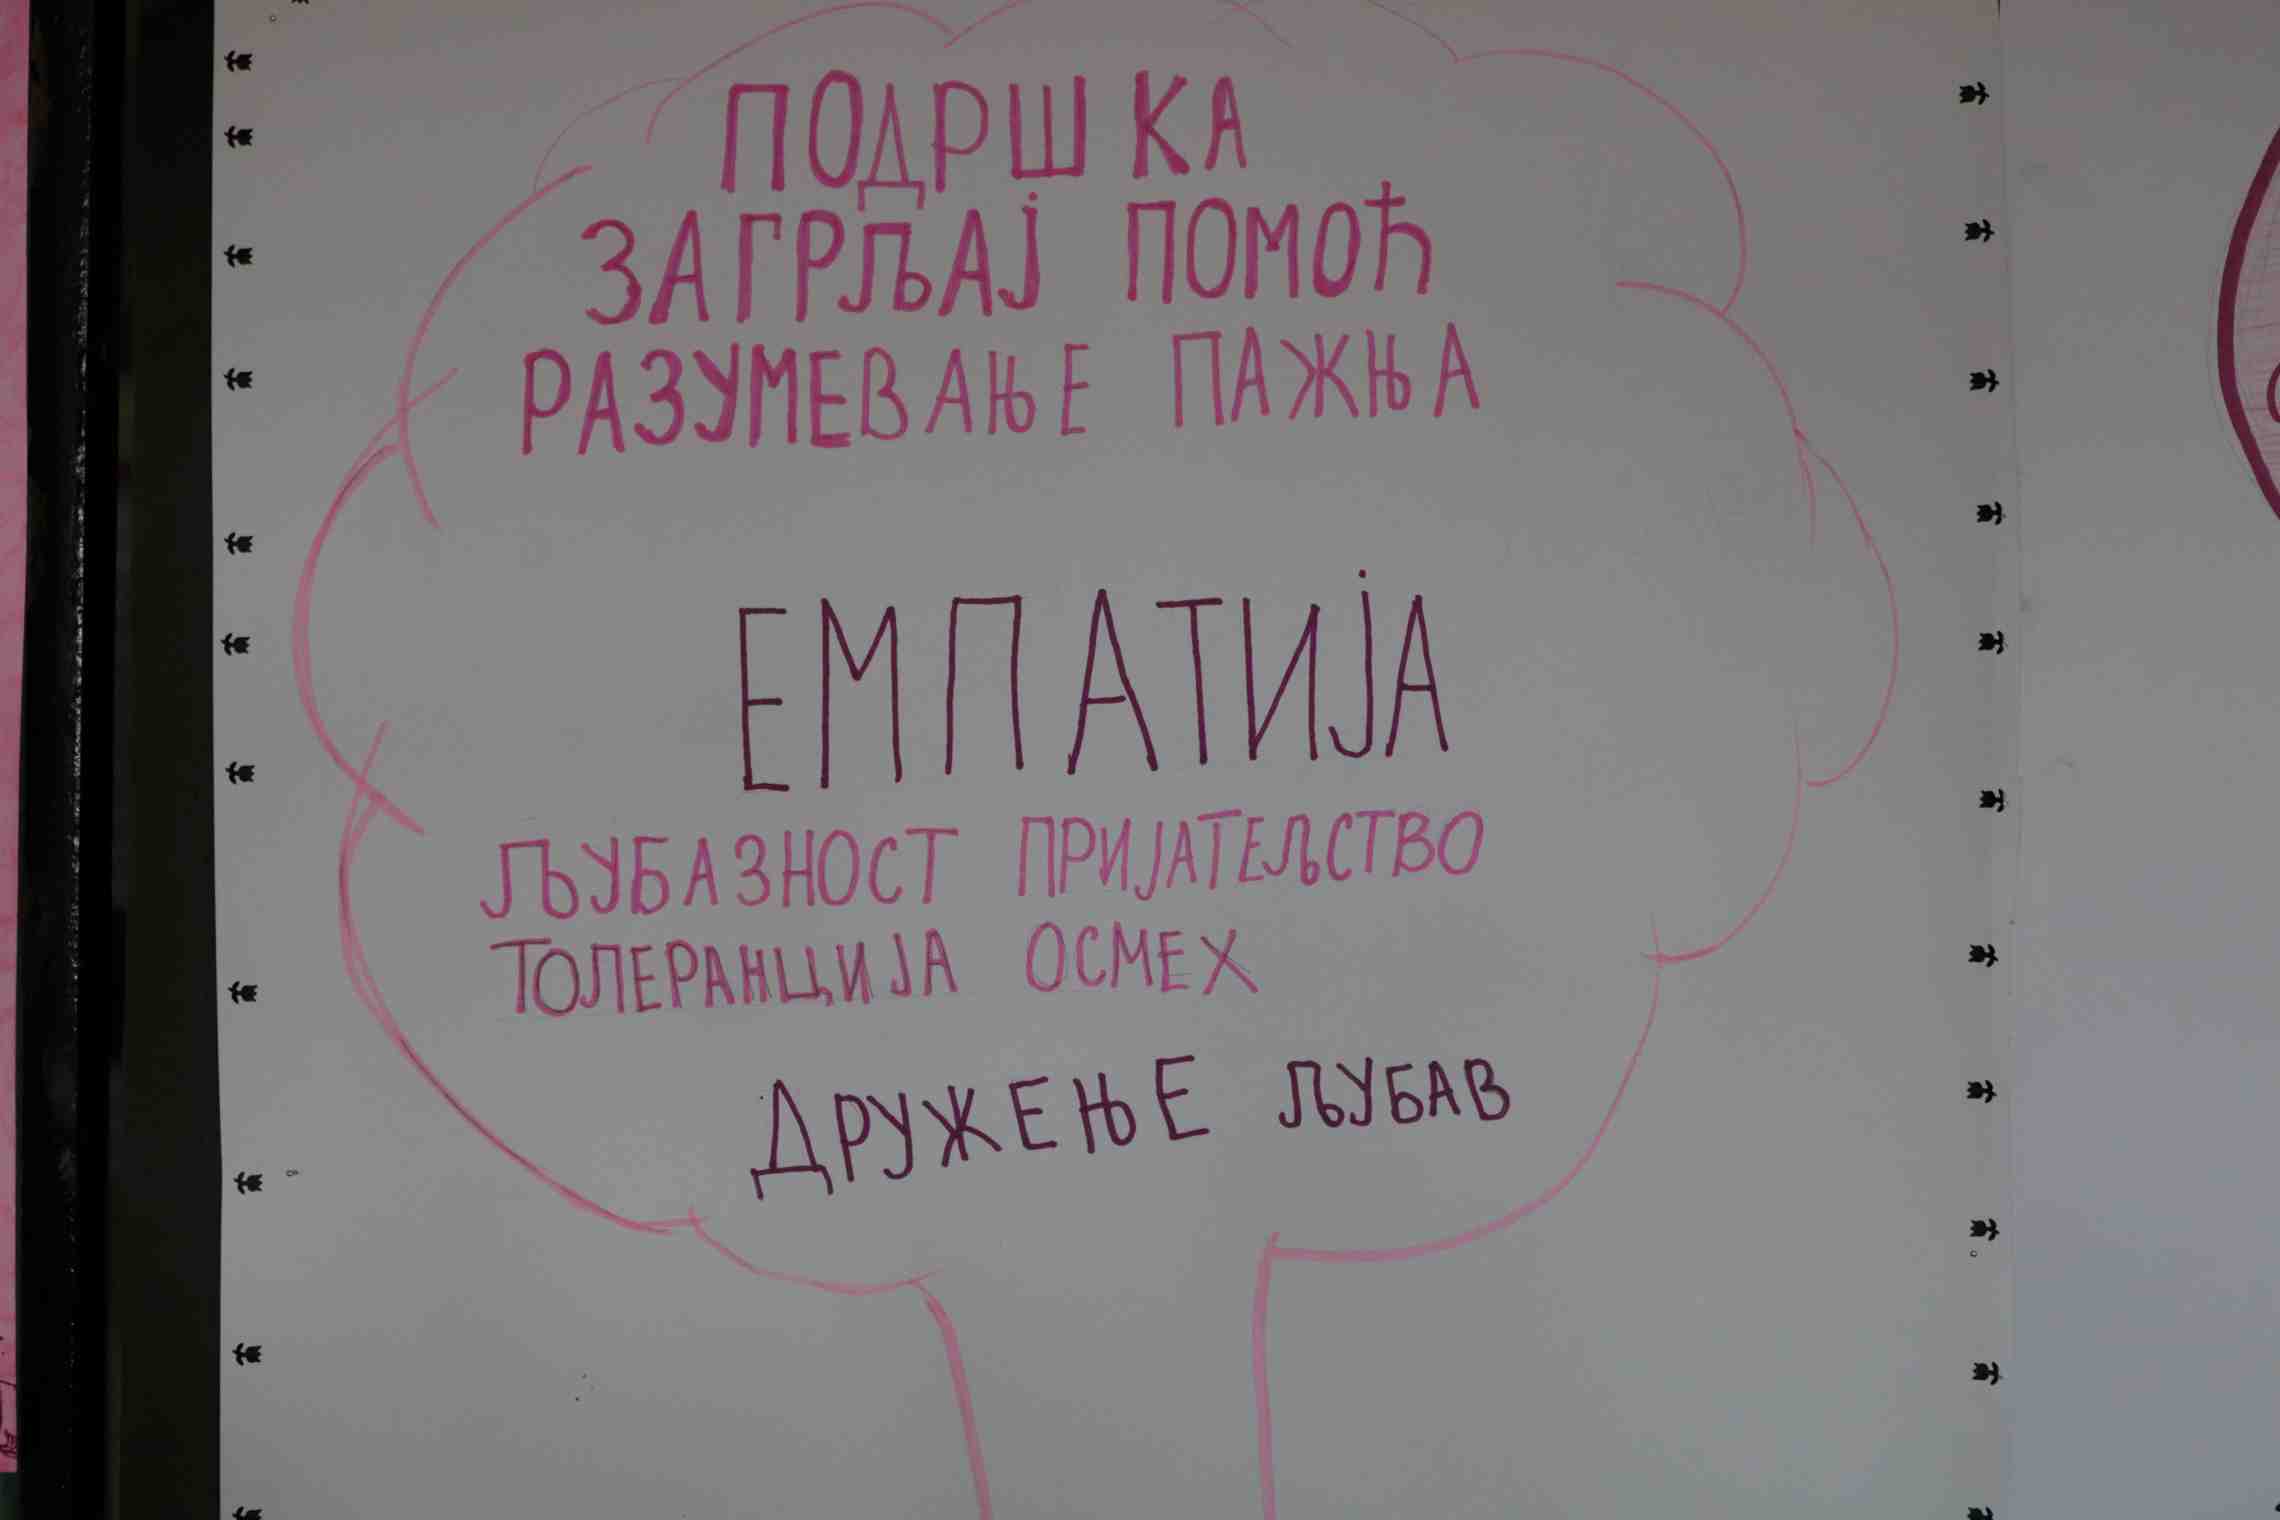 ПОДРШКА
ЗАГРЉАЈ ПОМОЋ
РАЗУМЕВАЊЕ ПАЖЊА
ЕМПАТИЈА
ЉУБАЗНОСТ ПРИЈАТЕЉСТВО
ТОЛЕРАНЦИЈА ОСМЕХ
ДРУЖЕЊЕ ЉУБАВ